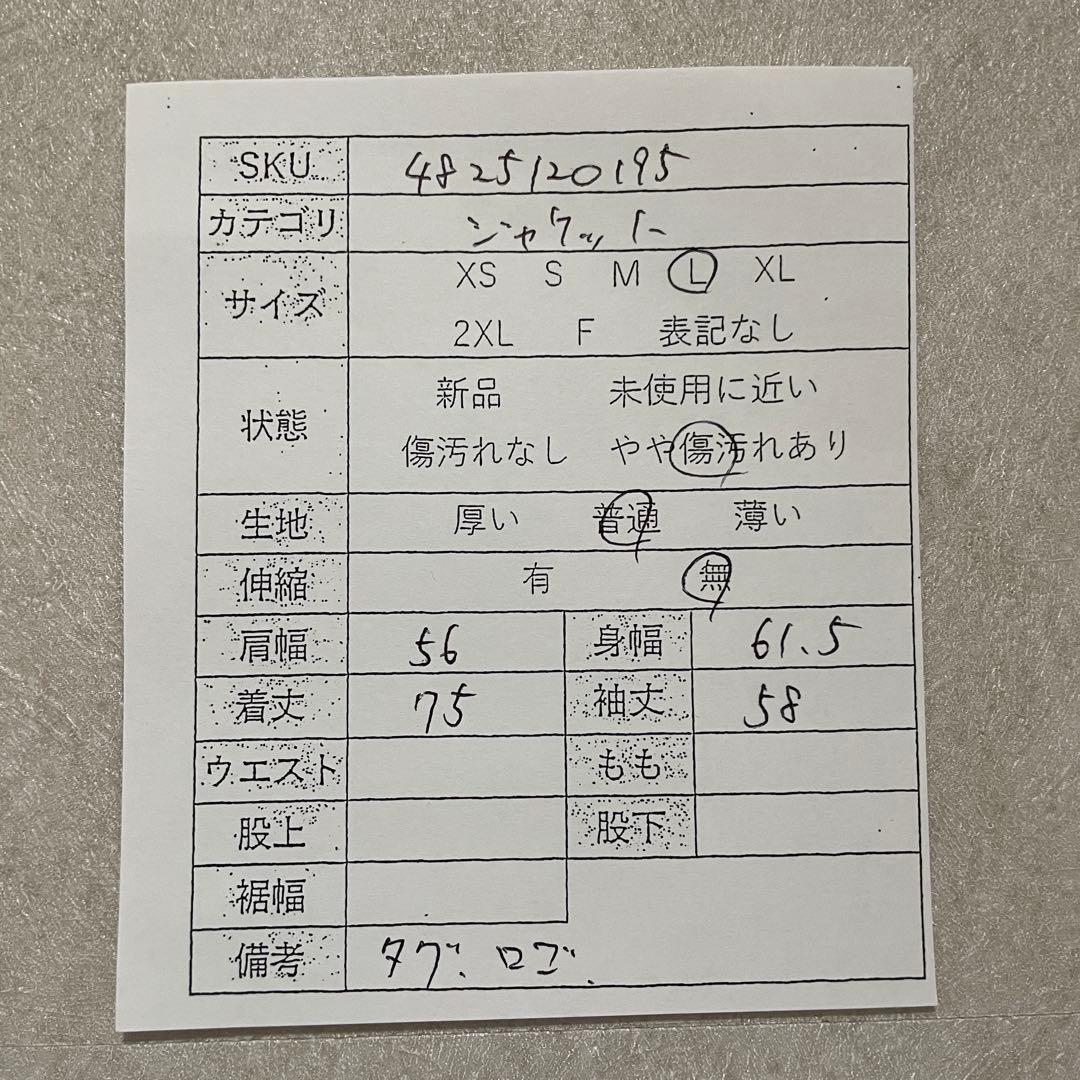 SKU 4825120195
カテゴリ ジャケット
サイズ XS S M L XL
2XL F 表記なし
状態 新品 未使用に近い
傷汚れなし やや傷汚れあり
生地 厚い 普通 薄い
伸縮 有 無
肩幅 56 身幅 61.5
着丈 75 袖丈 58
ウエスト もも
股上 股下
裾幅
備考 タグ、ロゴ、